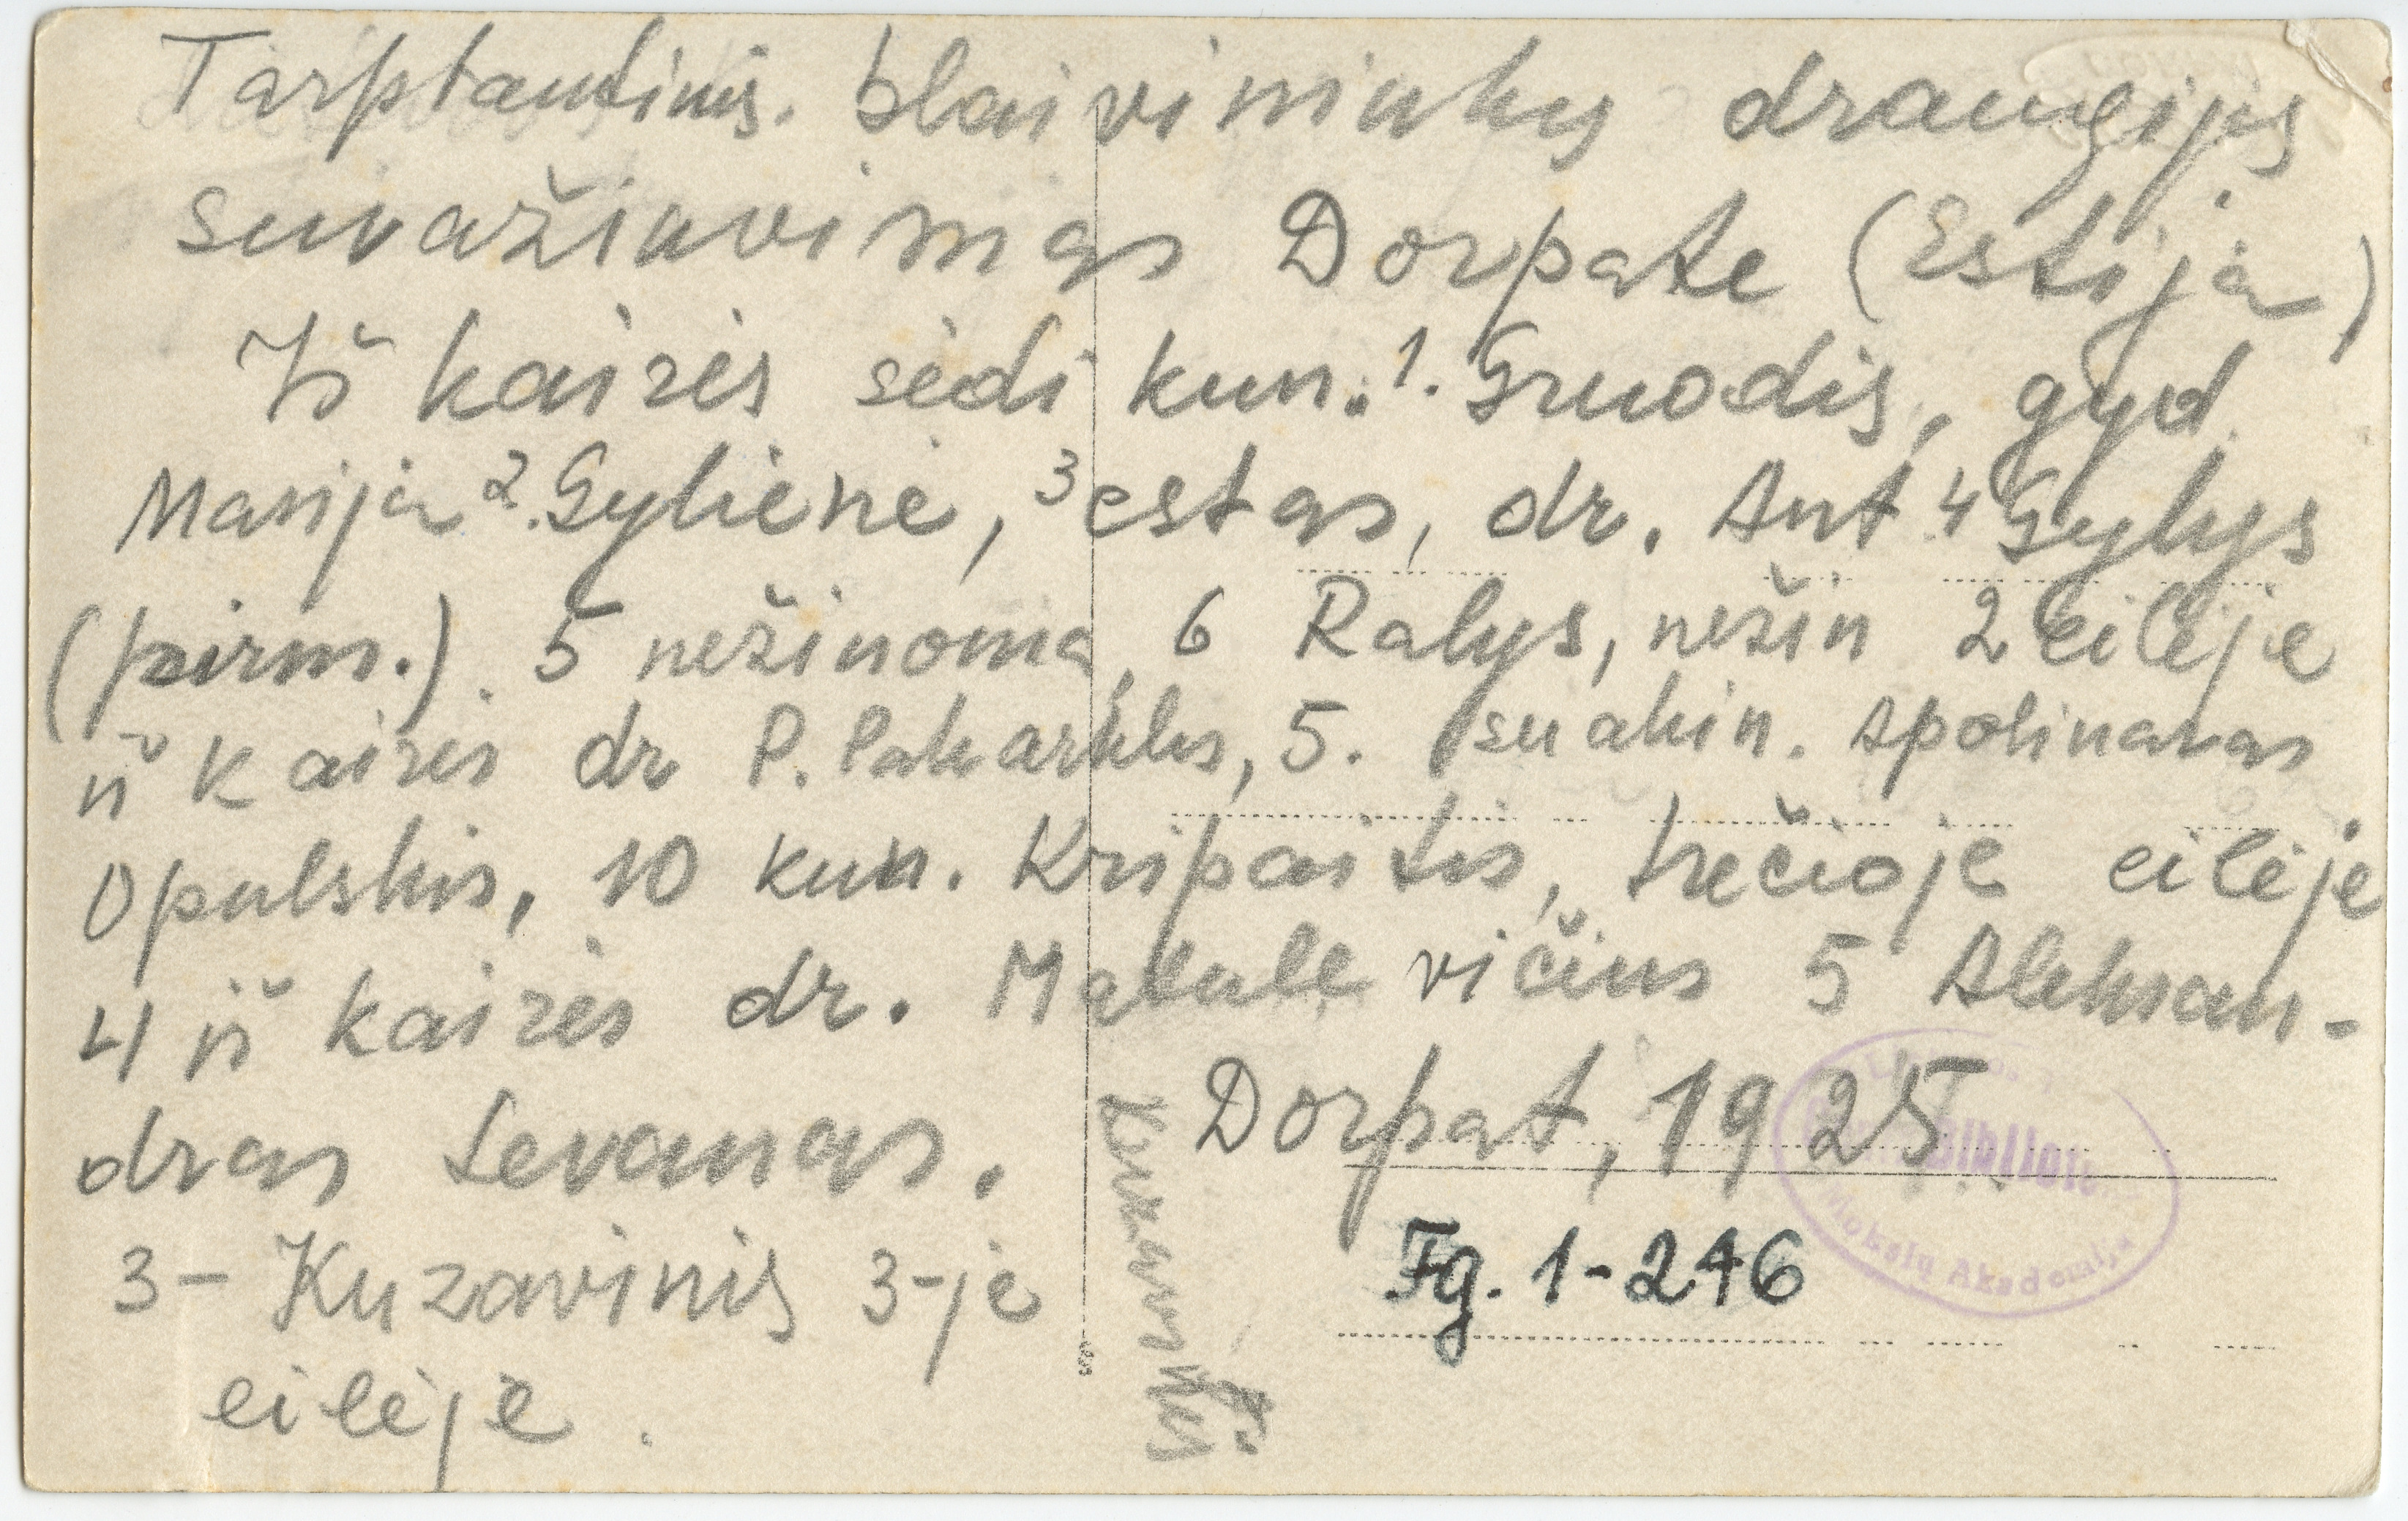 Tarptautinis. blaivininkų draugijų
suvažiavimas Dorpate (Estija)
Iš kairės sėdi kun. 1. Gruodis, gyd.
Marija 2. Gylienė, 3 estas, dr. Ant 4 Gylys
(pirm.). 5 nežinoma, 6 Ralys, nežin 2 eilėje
iš kairės dr P. Pakarklis, 5. su akin. Apolinaras
Opulskis, 10 kun. Kripaitis, trečioje eilėje
4 iš kairės dr. Matulevičius 5 Aleksan-
dras Levanas.
3 – Kuzavinis 3-je
eilėje.
Dorpat, 1925
Fg. 1-246
Bibliot
Mokslų Akademija